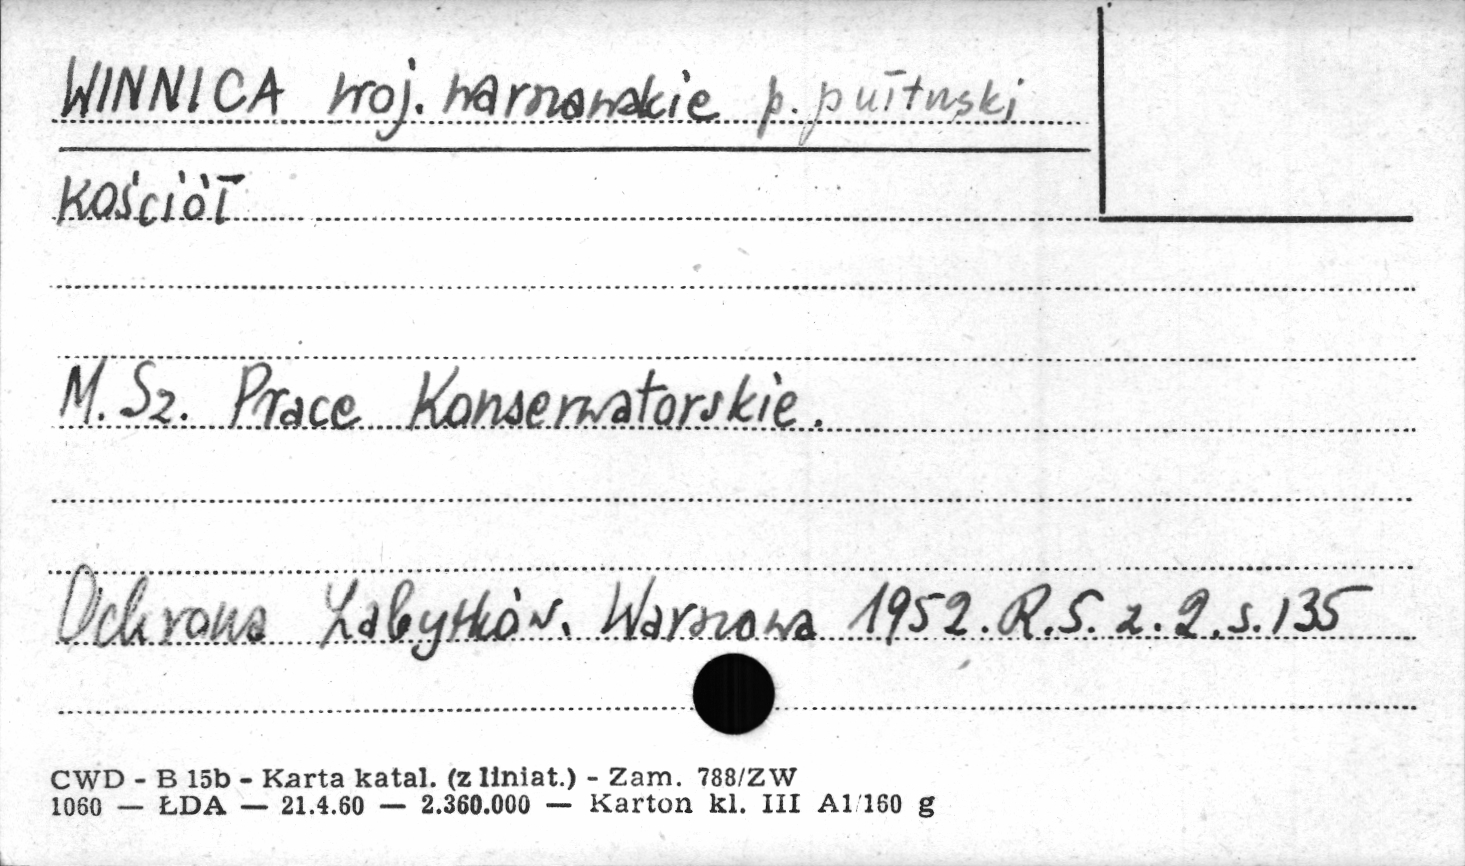 WINNICA woj. warszawskie p. pułtuski
Kościół
M. Sz. Prace Konserwatorskie.
Ochrona Zabytków. Warszawa 1952. R. 5. z. 2. s. 135
CWD - B 15b - Karta katal. (z liniat.) - Zam. 788/ZW
1060 — ŁDA — 21.4.60 — 2.360.000 — Karton kl. III A1/160 g